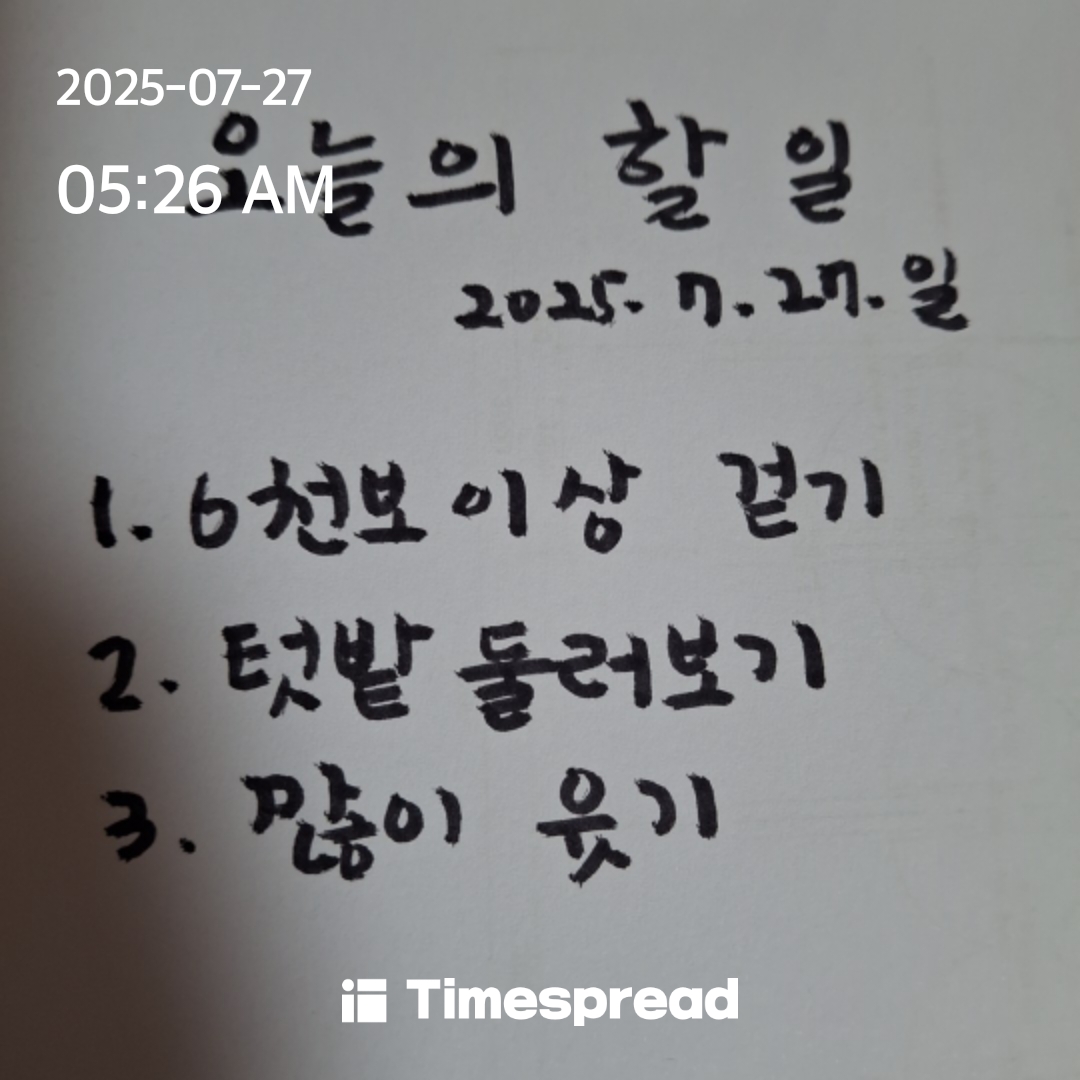 2025-07-27
05:26 AM
오늘의 할 일
2025. 7. 27. 일
1. 6천보 이상 걷기
2. 텃밭 둘러보기
3. 많이 웃기
Timespread